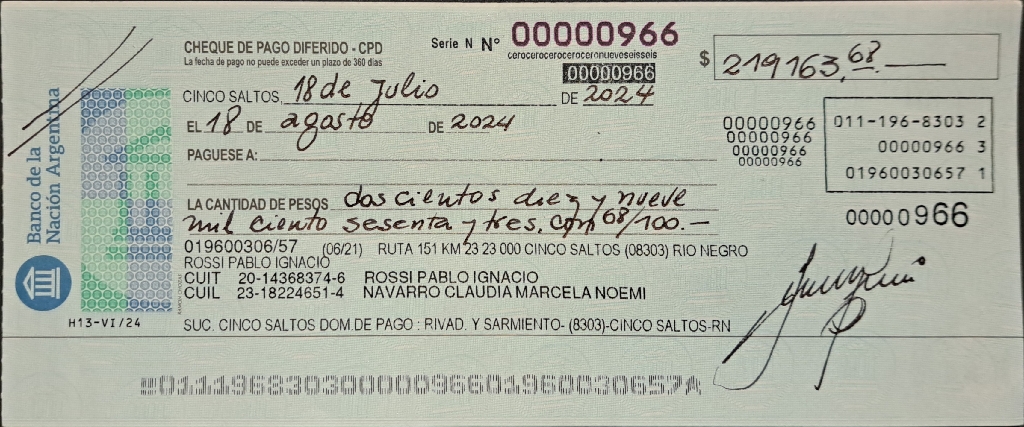 CHEQUE DE PAGO DIFERIDO - CPD
La fecha de pago no puede exceder un plazo de 360 días
Serie N Nº 00000966
ceroceroceroceroceronueveseisseis
00000966
$ 219163,68.—
CINCO SALTOS, 18 de Julio DE 2024
EL 18 DE agosto DE 2024
PAGUESE A:
00000966
00000966
00000966
00000966
011-196-8303 2
00000966 3
01960030657 1
LA CANTIDAD DE PESOS doscientos diez y nueve
mil ciento sesenta y tres, con 68/100.-
00000966
019600306/57 (06/21) RUTA 151 KM 23 23 000 CINCO SALTOS (08303) RIO NEGRO
ROSSI PABLO IGNACIO
CUIT 20-14368374-6 ROSSI PABLO IGNACIO
CUIL 23-18224651-4 NAVARRO CLAUDIA MARCELA NOEMI
SUC. CINCO SALTOS DOM.DE PAGO : RIVAD. Y SARMIENTO- (8303)-CINCO SALTOS-RN
Banco de la
Nación Argentina
H13-VI/24